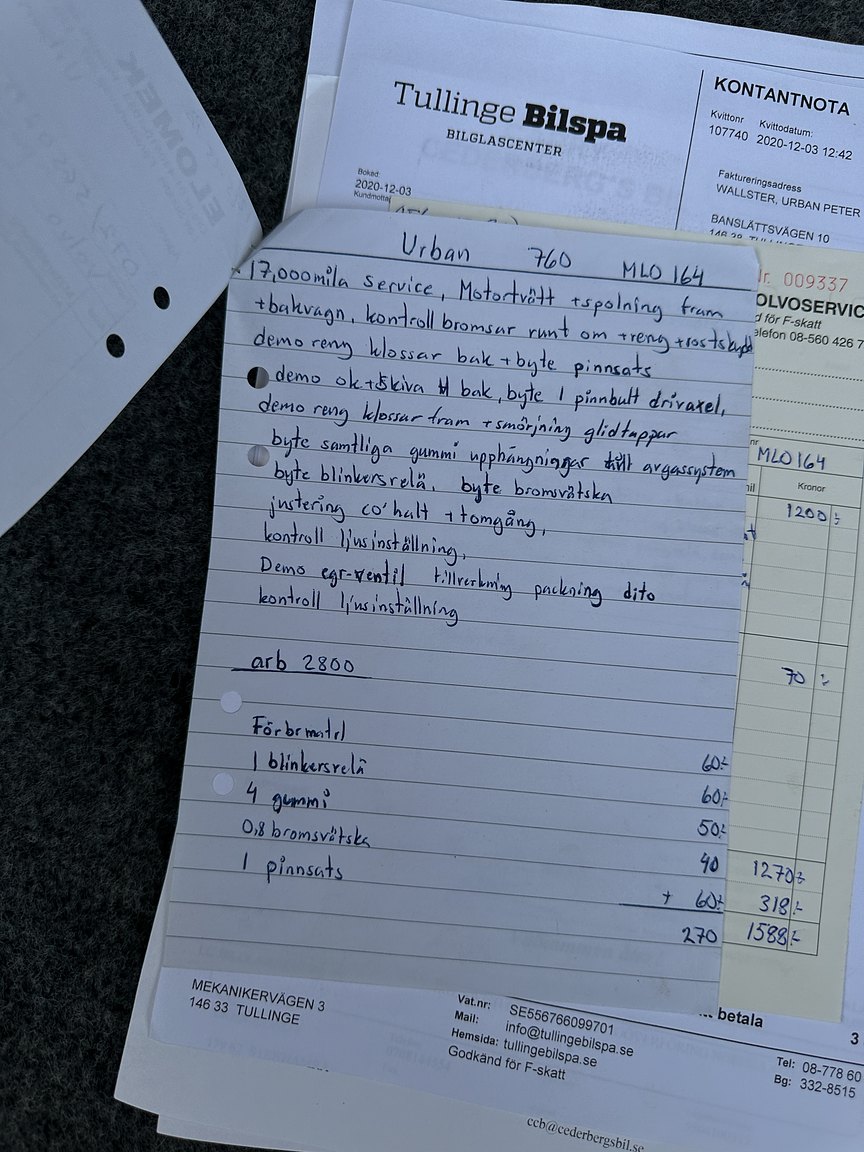 Tullinge Bilspa
BILGLASCENTER
KONTANTNOTA
Kvittonr Kvittodatum:
107740 2020-12-03 12:42
Bokad:
2020-12-03
Faktureringsadress
WALLSTER, URBAN PETER
BANSLÄTTSVÄGEN 10
Urban 760 MLO 164
17,000 mila service, Motortvätt + spolning fram
+ bakvagn, kontroll bromsar runt om + reng + rostskydd
demo reng klossar bak + byte pinnsats
demo ok + skiva bak, byte 1 pinnbult drivaxel,
demo reng klossar fram + smörjning glidtappar
byte samtliga gummi upphängningar till avgassystem
byte blinkersrelä, byte bromsvätska
justering co'halt + tomgång,
kontroll ljusinställning,
Demo egr-ventil tillverkning packning dito
kontroll ljusinställning
arb 2800
Förbrmatrl 60:-
1 blinkersrelä 60:-
4 gummi 50:-
0,8 bromsvätska 40
1 pinnsats + 60:-
270
009337
OLVOSERVIC
d för F-skatt
elefon 08-560 426 7
nr
MLO164
Kronor
1200:-
70:-
1270:-
318:-
1588:-
betala
3
MEKANIKERVÄGEN 3
146 33 TULLINGE
Vat.nr: SE556766099701
Mail: info@tullingebilspa.se
Hemsida: tullingebilspa.se
Godkänd för F-skatt
Tel: 08-778 60
Bg: 332-8515
ccb@cederbergsbil.se
ELOMEK